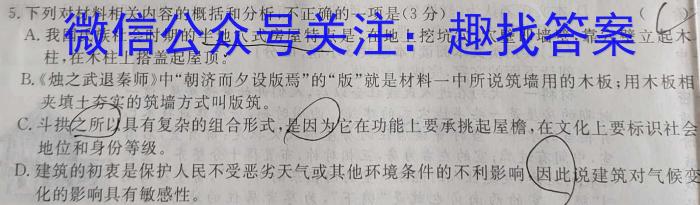 5.下列对材料相关内容的概括和分析,不正确的一项是(3分) ( )
微信公众号关注：趣找答案
A.我国氏族社会时期的土地穴式房屋特点是,在地上挖坑
柱,在木柱上搭盖起屋顶。
B.《烛之武退秦师》中“朝济而夕设版焉”的“版”就是材料一中所说筑墙用的木板;用木板相
夹填土夯实的筑墙方式叫版筑。
C.斗拱之所以具有复杂的组合形式,是因为它在功能上要承挑起屋檐,在文化上要标识社会
地位和身份等级。
D.建筑的初衷是保护人民不受恶劣天气或其他环境条件的不利影响,因此说建筑对气候变
化的影响具有敏感性。